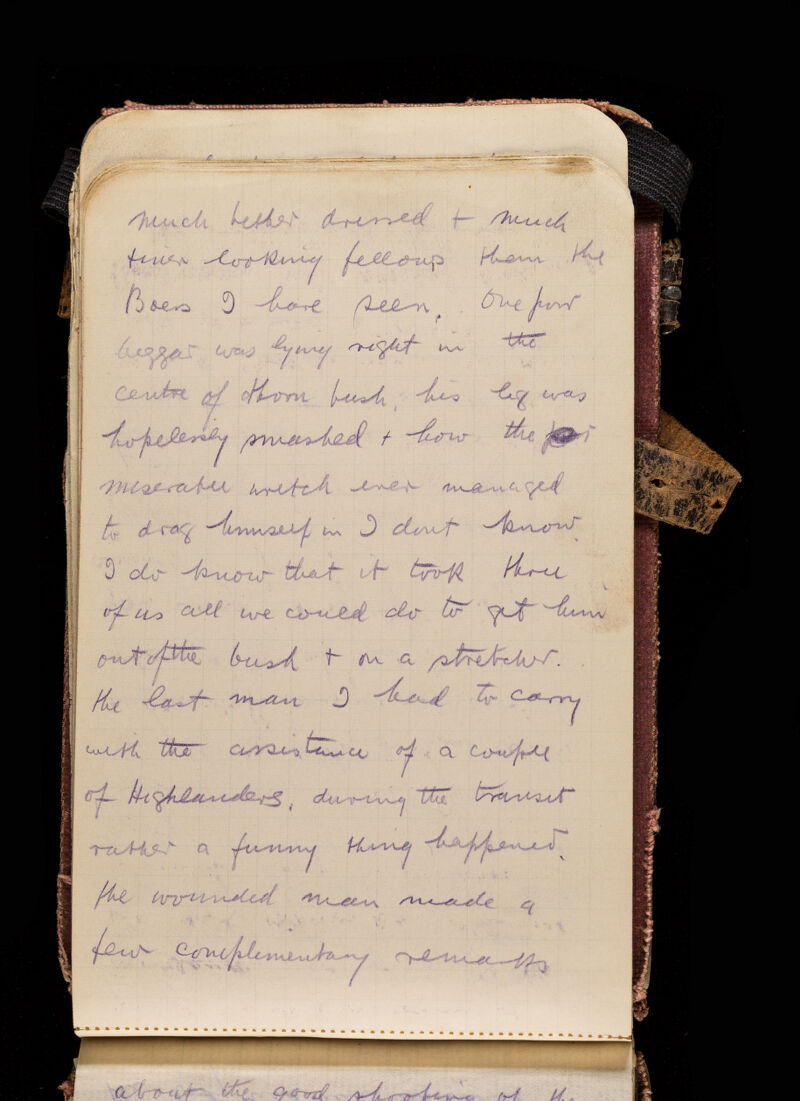 much better dressed + much
finer looking fellows than the
Boers I have seen. One poor
beggar was lying right in the
centre of thorn bush, his leg was
hopelessly smashed + how the
miserable wretch ever managed
to drag himself in I dont know.
I do know that it took three
of us all we could do to get him
out of the bush + on a stretcher.
the last man I had to carry
with the assistance of a couple
of Highlanders, during the transit
rather a funny thing happened.
the wounded man made a
few complimentary remarks
about the good shooting of the